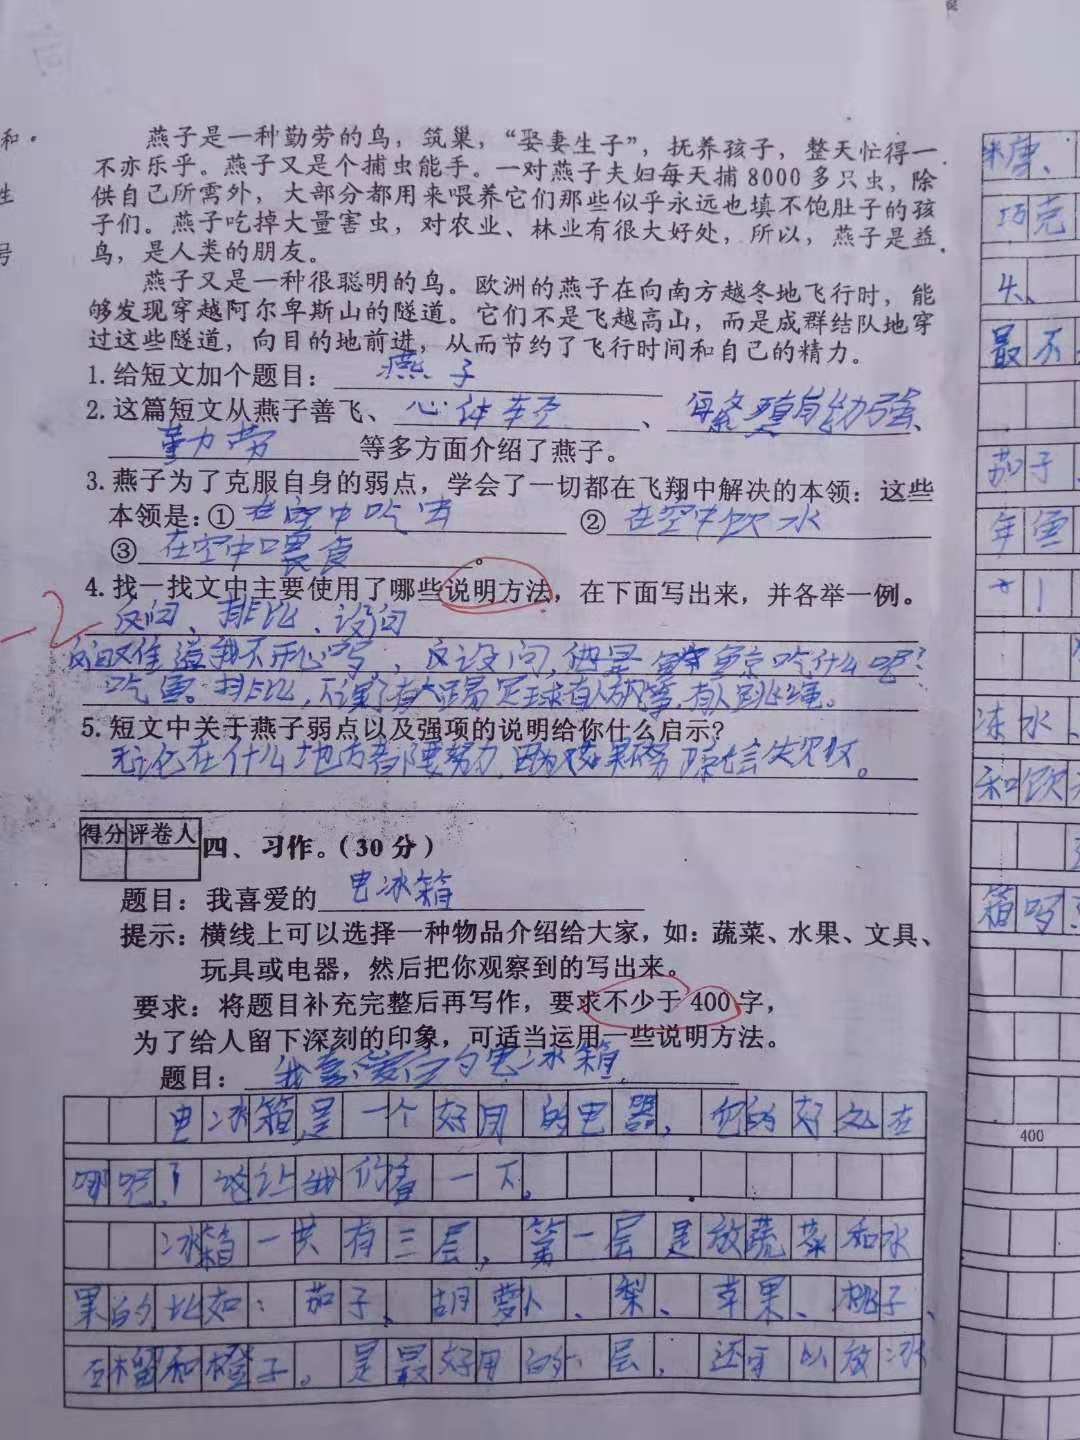 燕子是一种勤劳的鸟，筑巢，“娶妻生子”，抚养孩子，整天忙得一
不亦乐乎。燕子又是个捕虫能手。一对燕子夫妇每天捕8000多只虫，除
供自己所需外，大部分都用来喂养它们那些似乎永远也填不饱肚子的孩
子们。燕子吃掉大量害虫，对农业、林业有很大好处，所以，燕子是益
鸟，是人类的朋友。
燕子又是一种很聪明的鸟。欧洲的燕子在向南方越冬地飞行时，能
够发现穿越阿尔卑斯山的隧道。它们不是飞越高山，而是成群结队地穿
过这些隧道，向目的地前进，从而节约了飞行时间和自己的精力。
1.给短文加个题目：燕子
2.这篇短文从燕子善飞、心体轻、强、
勤劳等多方面介绍了燕子。
3.燕子为了克服自身的弱点，学会了一切都在飞翔中解决的本领：这些
本领是：①在空中吃 ②在空中饮水
③在空中喂食。
4.找一找文中主要使用了哪些说明方法，在下面写出来，并各举一例。
-2 反问、排比、设问
难道我不开心吗，设问，吃什么呢？
吃鱼。排比，下课了有足球有人有人跳绳。
5.短文中关于燕子弱点以及强项的说明给你什么启示？
无论在什么地方都要努力，因为如果不努会失败。
得分 评卷人
四、习作。（30分）
题目：我喜爱的电冰箱
提示：横线上可以选择一种物品介绍给大家，如：蔬菜、水果、文具、
玩具或电器，然后把你观察到的写出来。
要求：将题目补充完整后再写作，要求不少于400字，
为了给人留下深刻的印象，可适当运用一些说明方法。
题目：我喜爱的电冰箱
电冰箱是一个好用的电器，他的好处在
哪呢？让我们看一下。
冰箱一共有三层，第一层是放蔬菜和水
果的比如：茄子、胡萝卜、梨、苹果、桃子、
石榴和橙子。是最好用的层，还可以放冰
糖、
巧克
4、
最不
茄子
年鱼
冻水、
和饮
箱吗
400